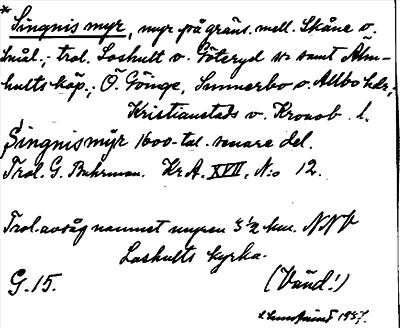 * Singnis myr, myr på gräns. mell. Skåne o.
Smål.; trol. Loshult o. Göteryd s:r samt Älm-
hults köp.; Ö. Göinge, Sunnerbo o. Allbo hdr;
Kristianstads o. Kronob. l.
Singnismÿr 1600-tal. senare del.
Trol. G. Buhrman. Kr.A. XVII, N:o 12.
Trol. avsåg namnet myren 3 1/2 km. NNV
Loshults kyrka.
G. 15. (Vänd!)
1957.